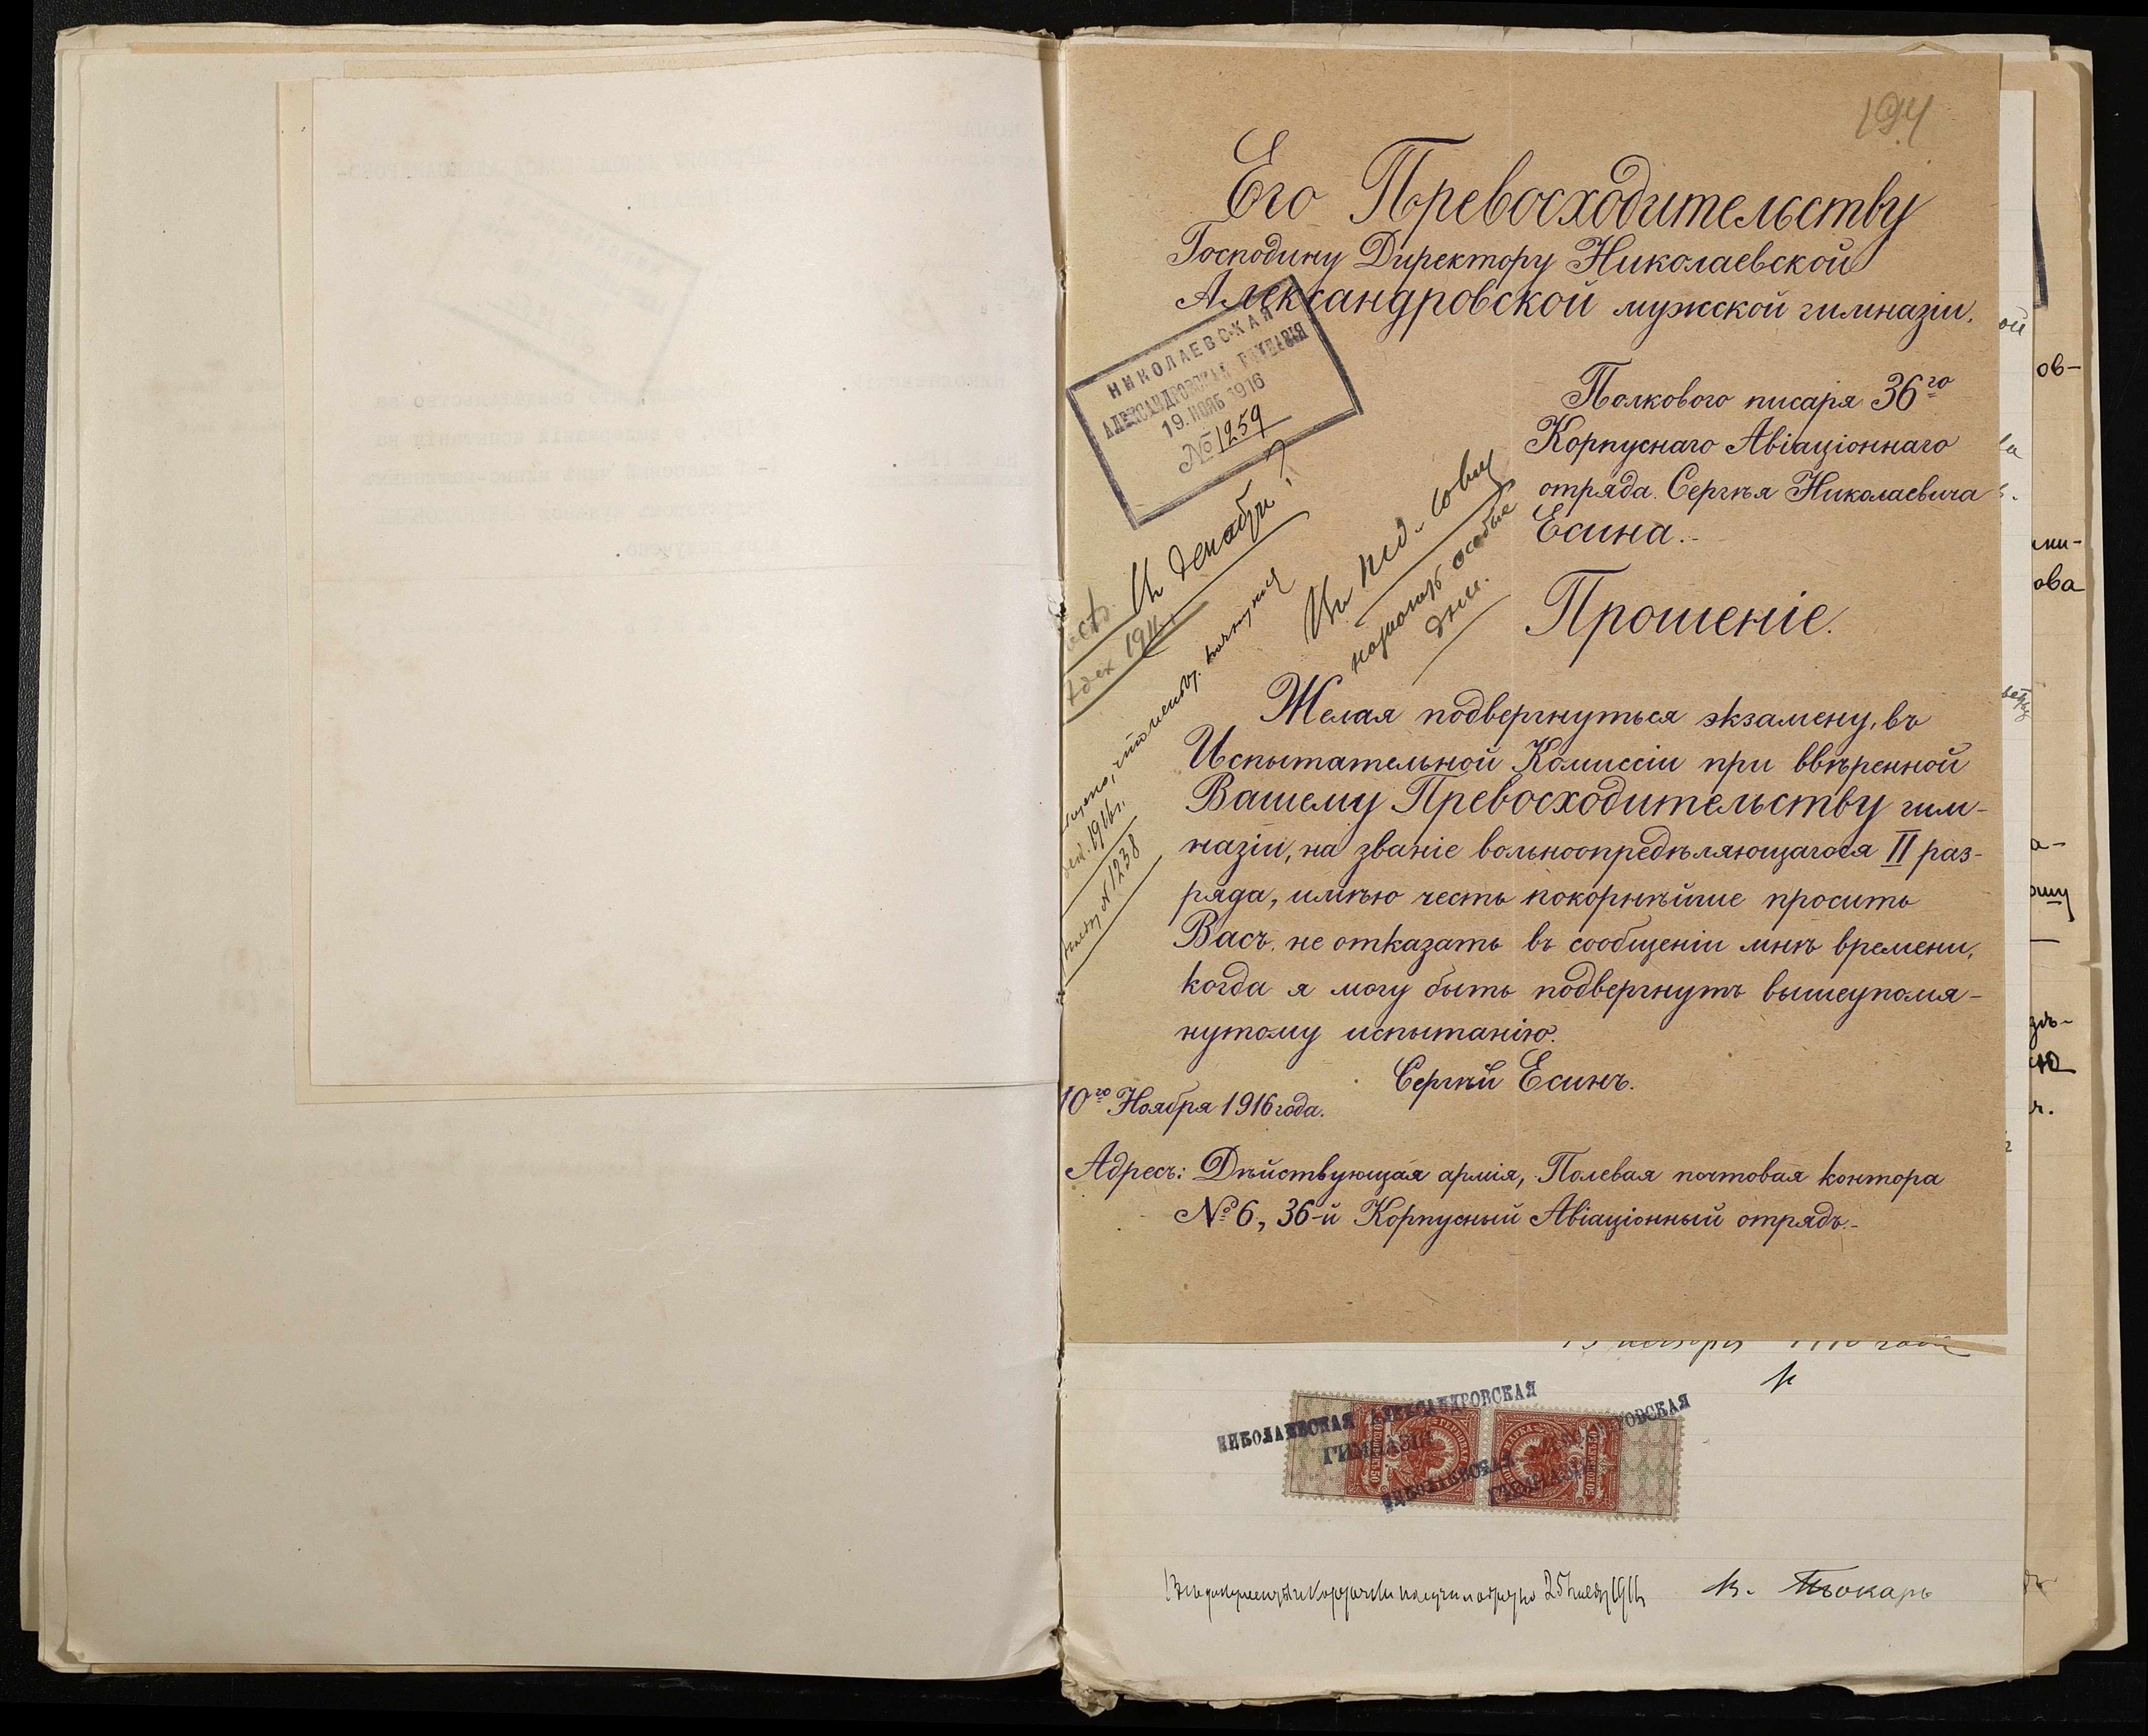 194
Его Превосходительству
Господину Директору Николаевской
Александровской мужской гимназіи.
НИКОЛАЕВСКАЯ
АЛЕКСАНДРОВСКАЯ ГИМНАЗІЯ
19. НОЯБ 1916
№ 1259
Полкового писаря 36го
Корпуснаго Авіаціоннаго
отряда Сергѣя Николаевича
Есина.
декабря
особые
дни.
Прошеніе.
Желая подвергнуться экзамену, въ
Испытательной Комиссіи при ввѣренной
Вашему Превосходительству гим-
назіи, на званіе вольноопредѣляющагося II раз-
ряда, имѣю честь покорнѣйше просить
Васъ, не отказать въ сообщеніи мнѣ времени,
когда я могу быть подвергнутъ вышеупомя-
нутому испытанію.
Сергѣй Есинъ.
10го Ноября 1916 года.
1916г.
№ 1238
Адресъ: Дѣйствующая армія, Полевая почтовая контора
№ 6, 36-й Корпусный Авіаціонный отрядъ.
НИКОЛАЕВСКАЯ АЛЕКСАНДРОВСКАЯ
ГИМНАЗІЯ
НИКОЛАЕВСКАЯ АЛЕКСАНДРОВСКАЯ
ГИМНАЗІЯ
50
50
В. Токарь